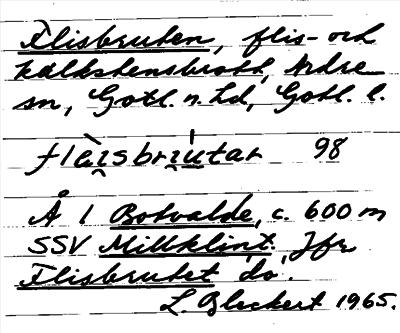 Flisbruten, flis- och
kalkstensbrott, Ardre
sn, Gotl. n. hd, Gotl. l.
98
Å 1 Botvalde, c. 600 m
SSV Millklint. Jfr
Flisbrutet do.
L. Gleckert 1965.